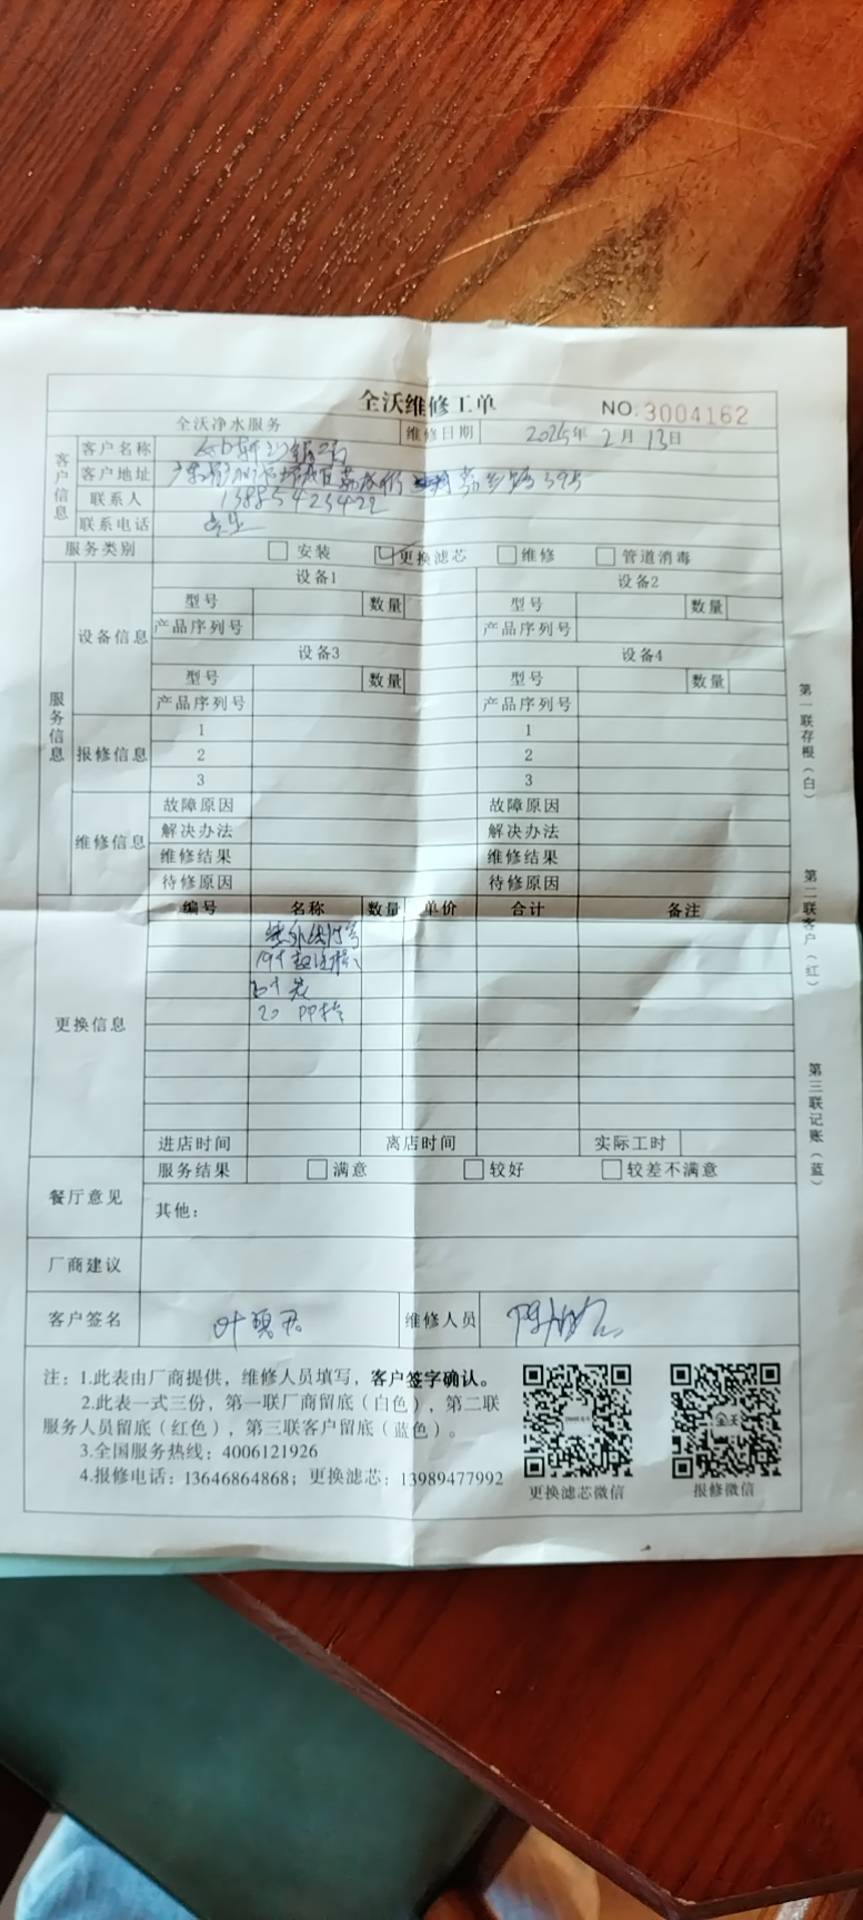 全沃维修工单
NO:3004162
全沃净水服务 维修日期 2025年 2月 13日
客户信息
客户名称
客户地址
联系人 13885423422
联系电话
服务类别 安装 更换滤芯 维修 管道消毒
服务信息
设备信息
设备1 设备2
型号 数量 型号 数量
产品序列号 产品序列号
设备3 设备4
型号 数量 型号 数量
产品序列号 产品序列号
报修信息
1 1
2 2
3 3
维修信息
故障原因 故障原因
解决办法 解决办法
维修结果 维修结果
待修原因 待修原因
更换信息
编号 名称 数量 单价 合计 备注
20 PP
进店时间 离店时间 实际工时
餐厅意见
服务结果 满意 较好 较差不满意
其他:
厂商建议
客户签名 维修人员
注: 1.此表由厂商提供，维修人员填写，客户签字确认。
2.此表一式三份，第一联厂商留底（白色），第二联
服务人员留底（红色），第三联客户留底（蓝色）。
3.全国服务热线：4006121926
4.报修电话：13646864868；更换滤芯：13989477992
更换滤芯微信 报修微信
全沃
第一联存根（白）
第二联客户（红）
第三联记账（蓝）